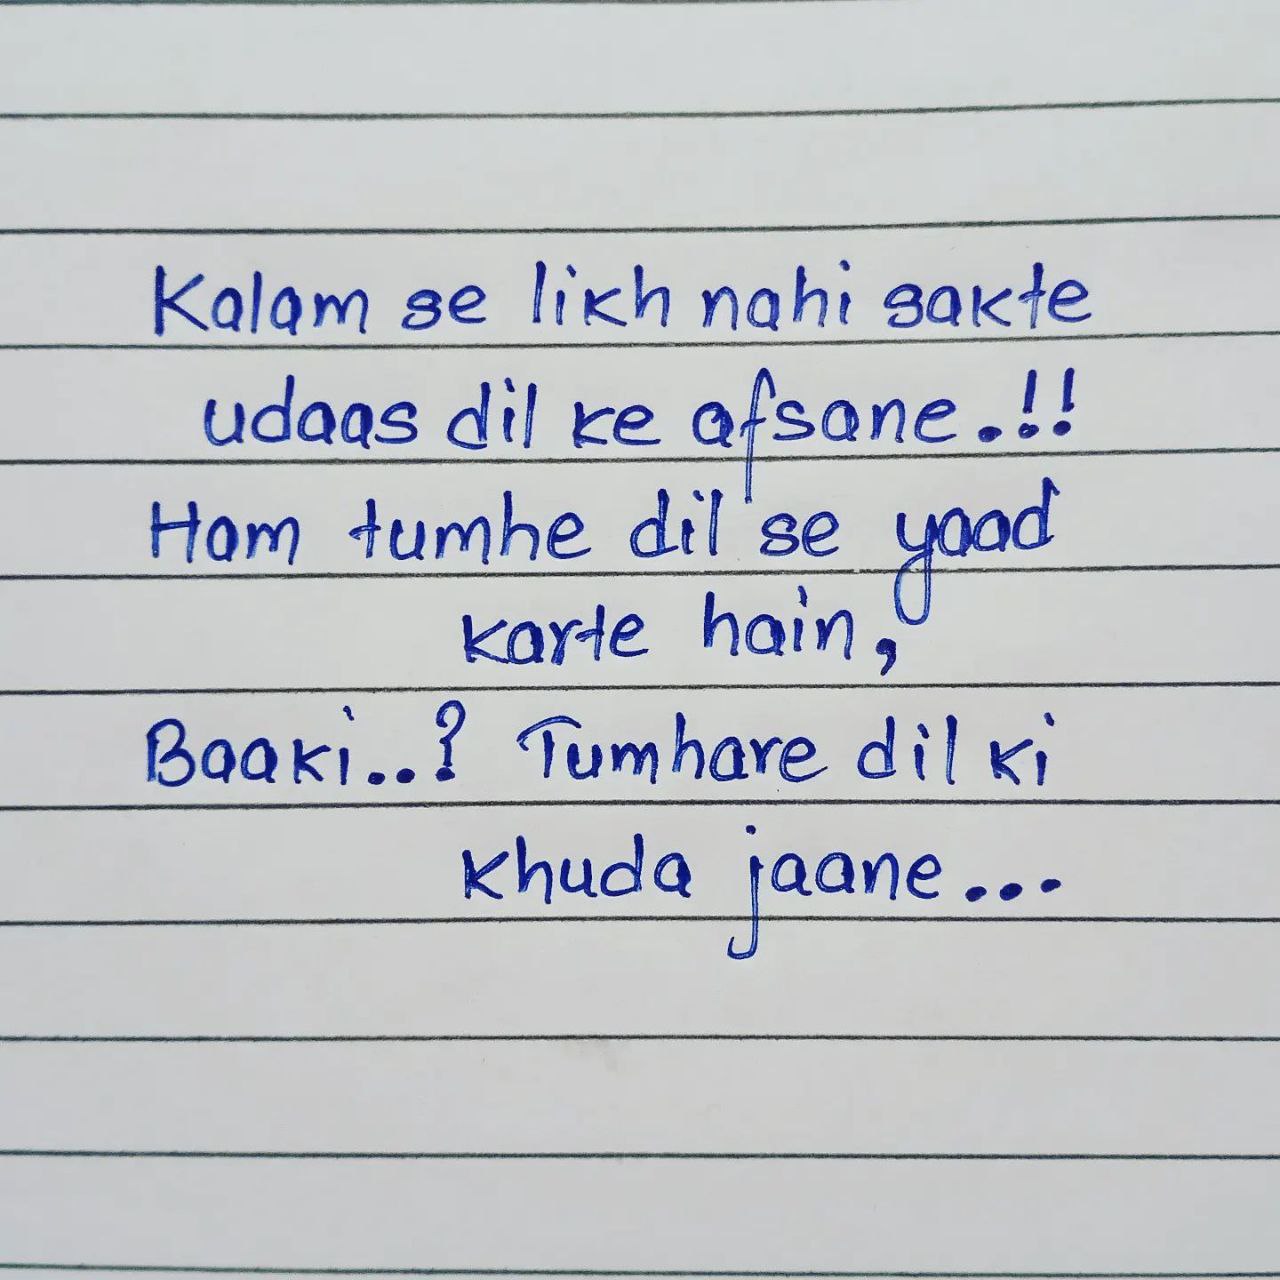 Kalam se likh nahi sakte
udaas dil ke afsane.!!
Ham tumhe dil se yaad
karte hain,
Baaki..? Tumhare dil ki
khuda jaane...